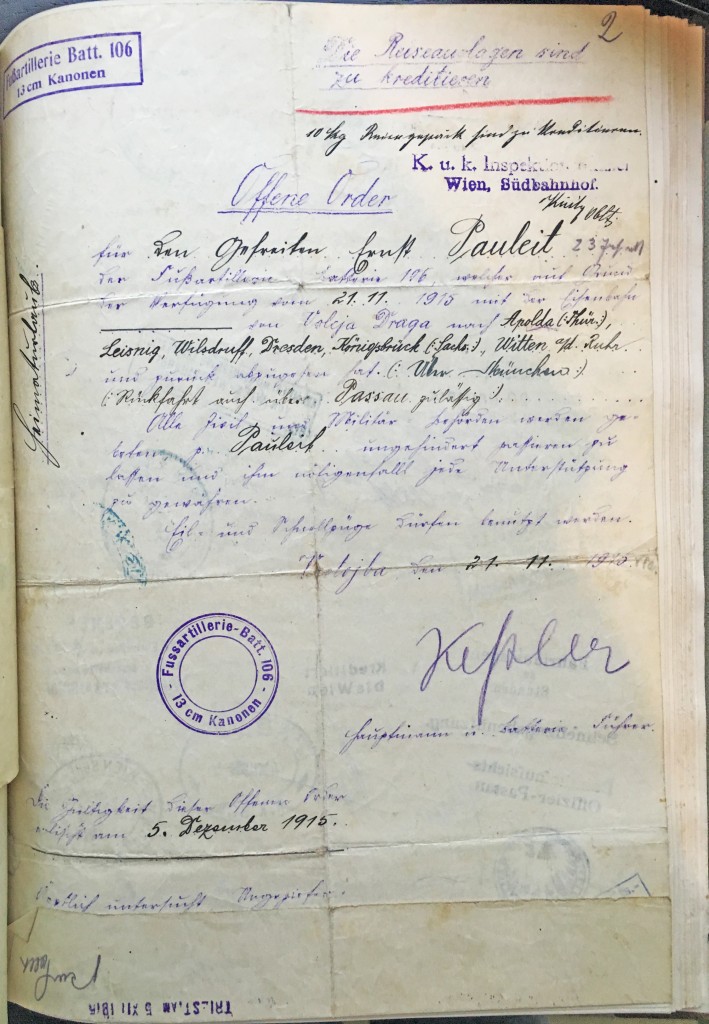 2
Fußartillerie Batt. 106
13 cm Kanonen
Die Reiseauslagen sind
zu kreditieren
10 Kg Reisegepäck sind zu kreditieren.
K. u. k. Inspektions
Wien, Südbahnhof.
Oblt.
Offene Order
Heimaturlaub.
für den Gefreiten Ernst Pauleit
der Fußartillerie Batterie 106, welcher auf Grund
der Verfügung vom 21. 11. 1915 mit der Eisenbahn
von Volcja Draga nach Apolda (:Thür.:),
Leisnig, Wilsdruff, Dresden, Königsbrück (:Sachs.:), Witten a/d. Ruhr
und zurück abzureisen hat. (: Über München :)
(: Rückfahrt auch über Passau zuläßig :)
Alle Zivil und Militär behörden werden ge-
beten p. Pauleit ungehindert passieren zu
lassen und ihm nötigenfalls jede Unterstützung
zu gewähren.
Eil- und Schnellzüge dürfen benutzt werden.
den 21. 11. 1915
Keßler
Hauptmann u. Batterie Führer.
Fussartillerie-Batt. 106
13 cm Kanonen
Die Gültigkeit dieser Offenen Order
erlischt am 5. Dezember 1915.
untersucht
TRIEST, AM 5 XII 1915